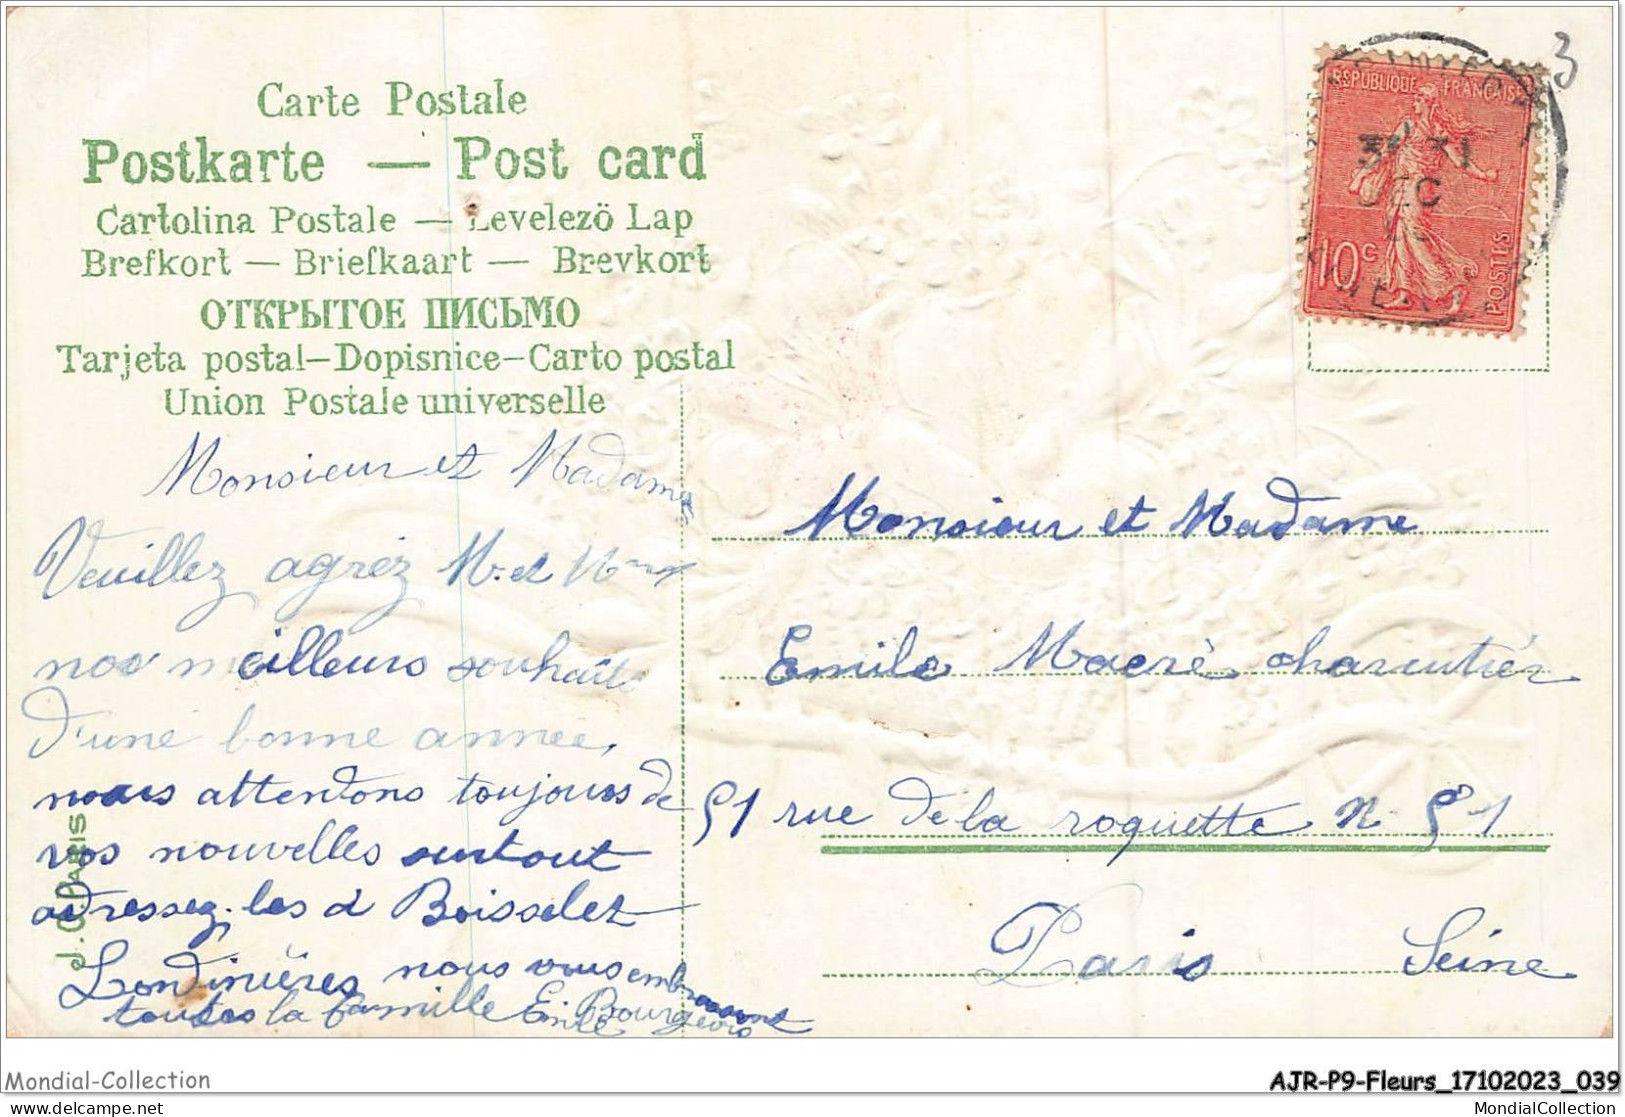 Carte Postale
Postkarte — Post card
Cartolina Postale — Levelezö Lap
Brefkort — Briefkaart — Brevkort
ОТКРЫТОЕ ПИСЬМО
Tarjeta postal–Dopisnice–Carto postal
Union Postale universelle
3
REPUBLIQUE FRANÇAISE
31
DEC
10c
POSTES
Monsieur et Madame
Veuillez agréez M. et Mme
nos meilleurs souhaits
d'une bonne année,
nous attendons toujours de
vos nouvelles surtout
adressez. les a Boisselet
Londinières nous vous embrassont
toutes la famille Emile Bourgeois
J.C. PARIS
Monsieur et Madame
Emile Macrè charcutier
51 rue de la roquette N- 51
Paris Seine
Mondial-Collection
AJR-P9-Fleurs_17102023_039
www.delcampe.net
MondialCollection